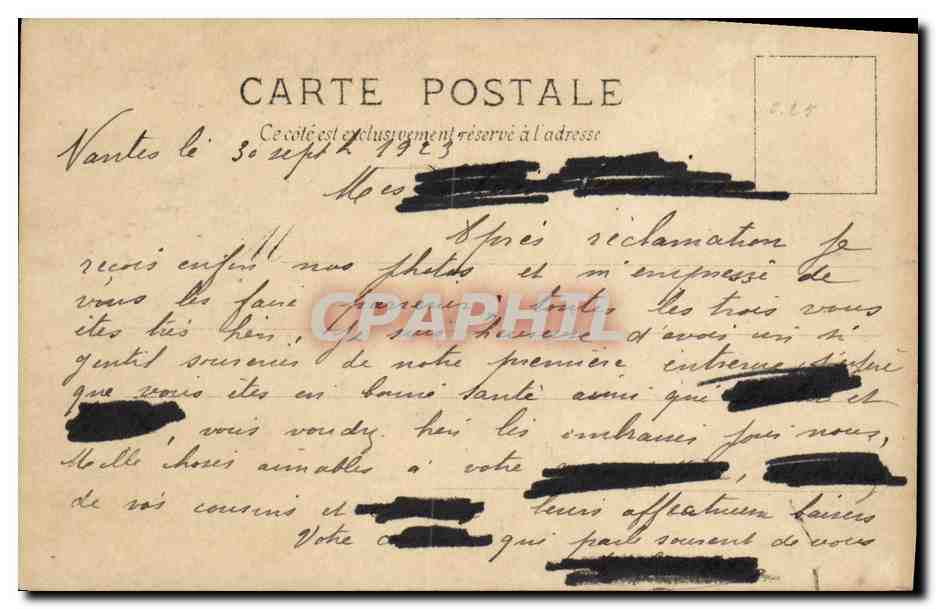 CARTE POSTALE
Ce côté est exclusivement réservé à l'adresse
0.25
Nantes le 30 sept 1923
Mes
Après réclamation je
reçois enfin nos photos et m'empresse de
vous les faire parvenir, toutes les trois vous
êtes très bien, Je suis heureuse d'avoir un si
gentil souvenir de notre première entrevue
que vous êtes en bonne santé ainsi que et
, vous voudrez bien les embrasser pour nous,
Mille choses aimables à votre ,
de vos cousins et leurs affectueux baisers
Votre qui parle souvent de vous
CPAPHIL